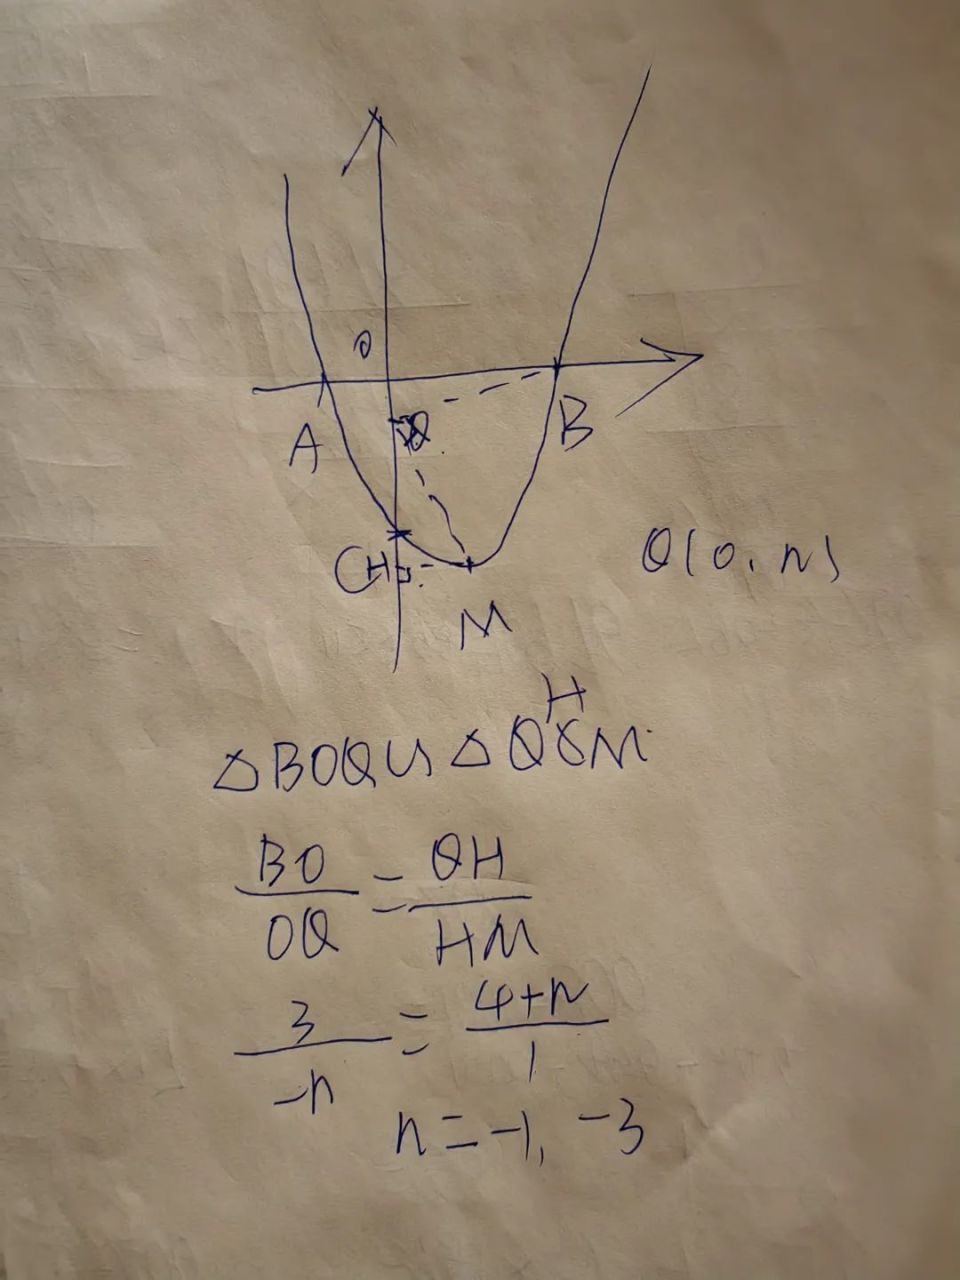 O
A
Q
B
C H
Q(0, n)
M
H
△BOQ∽△QOM
BO/OQ = QH/HM
3/-n = 4+n/1
n=-1, -3